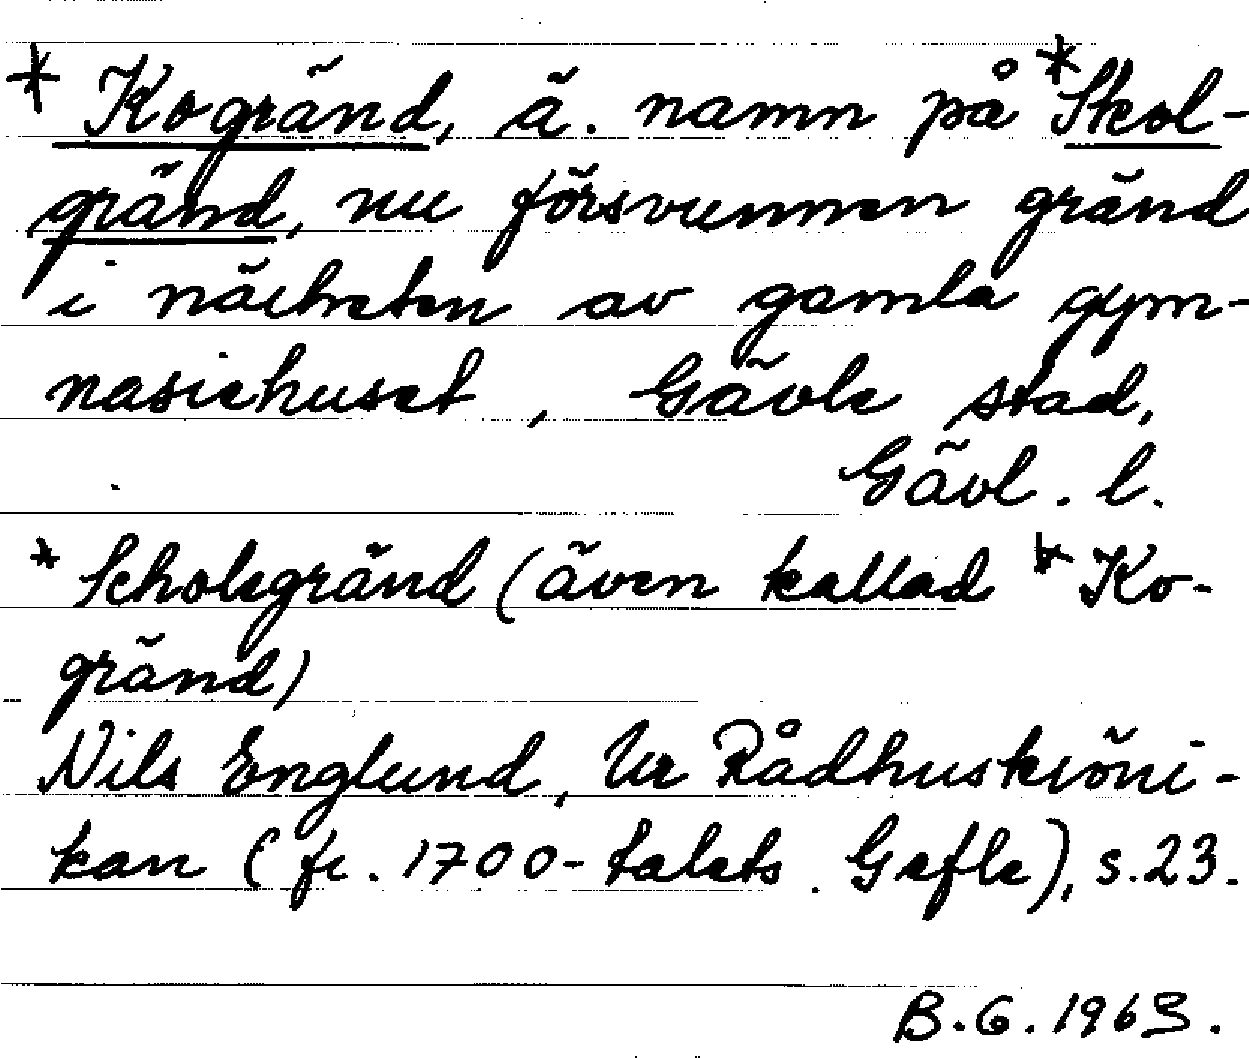 * Kogränd, ä. namn på *Skol-
gränd, nu försvunnen gränd
i närheten av gamla gym-
nasiehuset, Gävle stad,
Gävl. l.
* Scholegränd (även kallad * Ko-
gränd)
Nils Englund, Ur Rådhuskröni-
kan (fr. 1700-talets Gefle), s. 23.
B. G. 1963.